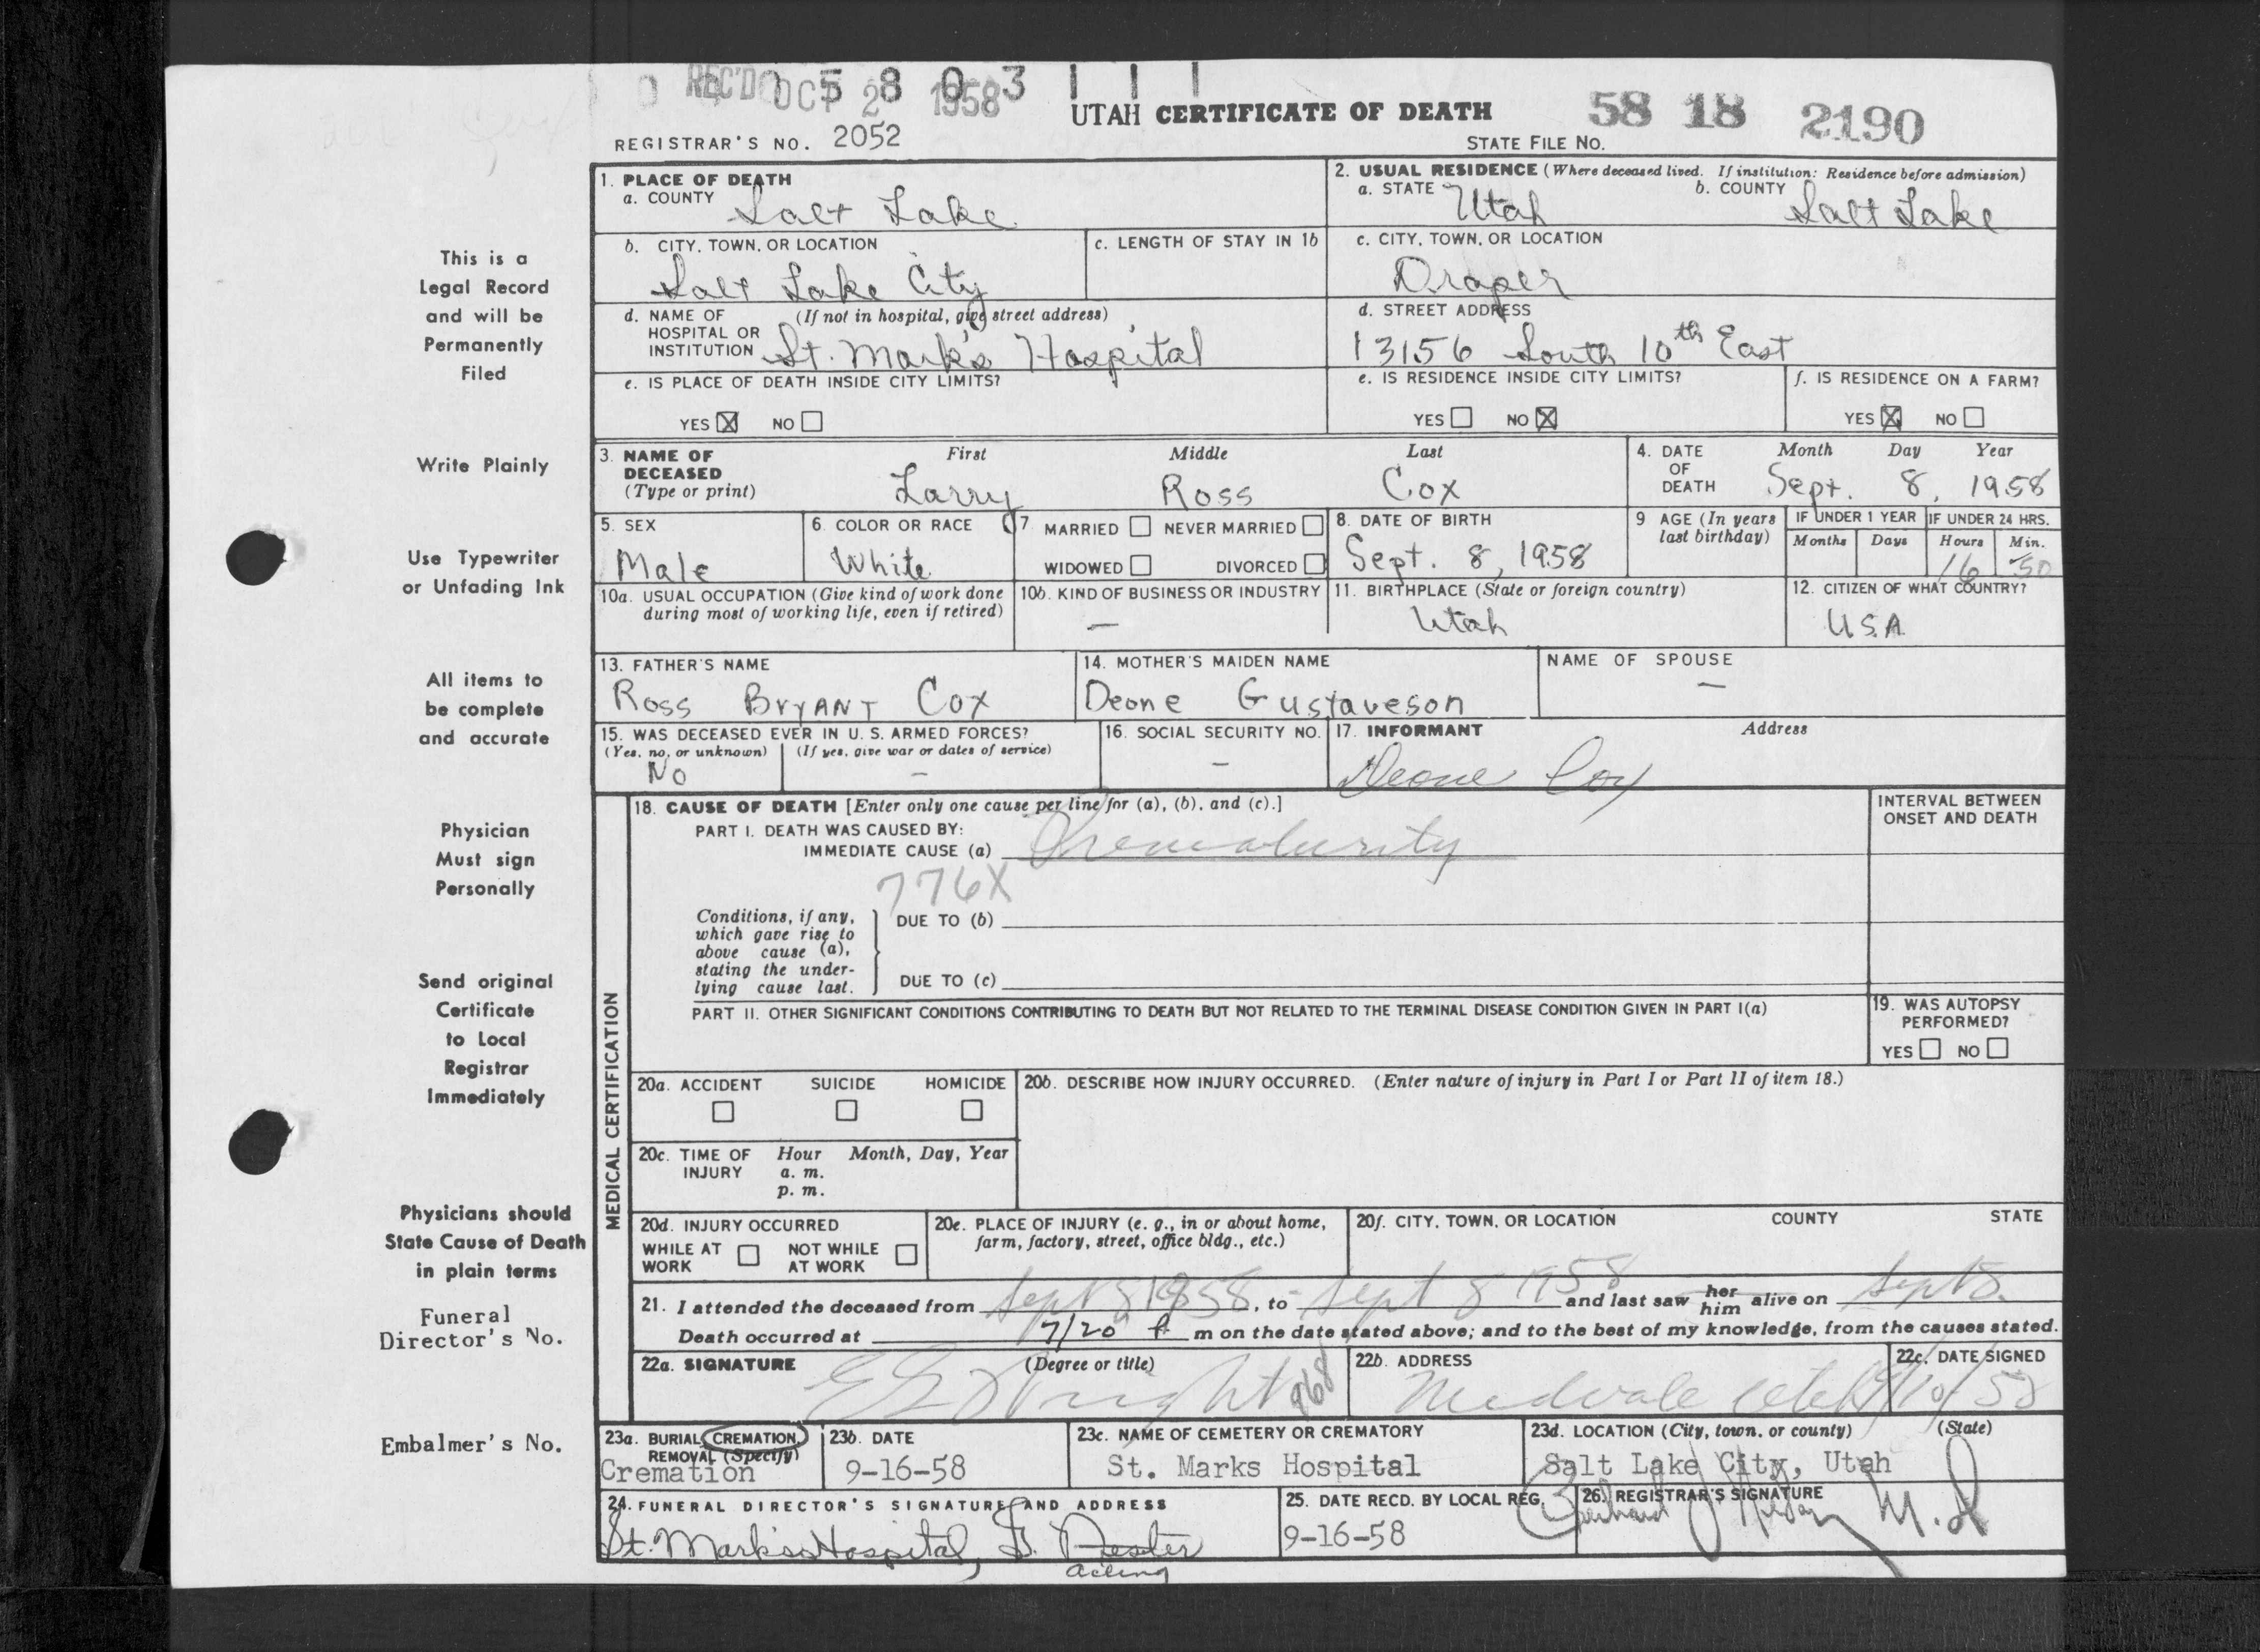 REC'D OCT 2 1958
0 5 8 0 3 1 1 1
UTAH CERTIFICATE OF DEATH
58 18 2190
REGISTRAR'S NO. 2052
STATE FILE NO.
1. PLACE OF DEATH
a. COUNTY Salt Lake
2. USUAL RESIDENCE (Where deceased lived. If institution: Residence before admission)
a. STATE Utah b. COUNTY Salt Lake
b. CITY, TOWN, OR LOCATION Salt Lake City
c. LENGTH OF STAY IN 1b
c. CITY, TOWN, OR LOCATION Draper
d. NAME OF HOSPITAL OR INSTITUTION (If not in hospital, give street address) St. Mark's Hospital
d. STREET ADDRESS 13156 South 10th East
e. IS PLACE OF DEATH INSIDE CITY LIMITS?
YES ☒ NO ☐
e. IS RESIDENCE INSIDE CITY LIMITS?
YES ☐ NO ☒
f. IS RESIDENCE ON A FARM?
YES ☒ NO ☐
3. NAME OF DECEASED (Type or print)
First Middle Last
Larry Ross Cox
4. DATE OF DEATH Month Day Year
Sept. 8, 1958
5. SEX Male
6. COLOR OR RACE White
7. MARRIED ☐ NEVER MARRIED ☐
WIDOWED ☐ DIVORCED ☐
8. DATE OF BIRTH Sept. 8, 1958
9 AGE (In years last birthday)
IF UNDER 1 YEAR Months Days
IF UNDER 24 HRS. Hours Min.
16 50
10a. USUAL OCCUPATION (Give kind of work done during most of working life, even if retired)
10b. KIND OF BUSINESS OR INDUSTRY —
11. BIRTHPLACE (State or foreign country) Utah
12. CITIZEN OF WHAT COUNTRY? U.S.A.
13. FATHER'S NAME Ross Bryant Cox
14. MOTHER'S MAIDEN NAME Deone Gustaveson
NAME OF SPOUSE —
15. WAS DECEASED EVER IN U. S. ARMED FORCES?
(Yes, no, or unknown) (If yes, give war or dates of service)
No –
16. SOCIAL SECURITY NO. –
17. INFORMANT Address
Deone Cox
MEDICAL CERTIFICATION
18. CAUSE OF DEATH [Enter only one cause per line for (a), (b), and (c).]
INTERVAL BETWEEN ONSET AND DEATH
PART I. DEATH WAS CAUSED BY:
IMMEDIATE CAUSE (a) Prematurity
776X
Conditions, if any, which gave rise to above cause (a), stating the underlying cause last.
DUE TO (b)
DUE TO (c)
PART II. OTHER SIGNIFICANT CONDITIONS CONTRIBUTING TO DEATH BUT NOT RELATED TO THE TERMINAL DISEASE CONDITION GIVEN IN PART I(a)
19. WAS AUTOPSY PERFORMED?
YES ☐ NO ☐
20a. ACCIDENT SUICIDE HOMICIDE
☐ ☐ ☐
20b. DESCRIBE HOW INJURY OCCURRED. (Enter nature of injury in Part I or Part II of item 18.)
20c. TIME OF INJURY Hour Month, Day, Year
a. m.
p. m.
20d. INJURY OCCURRED
WHILE AT WORK ☐ NOT WHILE AT WORK ☐
20e. PLACE OF INJURY (e. g., in or about home, farm, factory, street, office bldg., etc.)
20f. CITY, TOWN, OR LOCATION COUNTY STATE
21. I attended the deceased from Sept 8 1958, to Sept 8 1958 and last saw her him alive on Sept 8.
Death occurred at 7/20 P m on the date stated above; and to the best of my knowledge, from the causes stated.
22a. SIGNATURE (Degree or title)
22b. ADDRESS Midvale Utah
22c. DATE SIGNED 9/10/58
23a. BURIAL, CREMATION, REMOVAL (Specify) Cremation
23b. DATE 9-16-58
23c. NAME OF CEMETERY OR CREMATORY St. Marks Hospital
23d. LOCATION (City, town, or county) (State)
Salt Lake City, Utah
24. FUNERAL DIRECTOR'S SIGNATURE AND ADDRESS
St. Mark's Hospital,
acting
25. DATE RECD. BY LOCAL REG. 9-16-58
26. REGISTRAR'S SIGNATURE
M.D
This is a
Legal Record
and will be
Permanently
Filed
Write Plainly
Use Typewriter
or Unfading Ink
All items to
be complete
and accurate
Physician
Must sign
Personally
Send original
Certificate
to Local
Registrar
Immediately
Physicians should
State Cause of Death
in plain terms
Funeral
Director's No.
Embalmer's No.